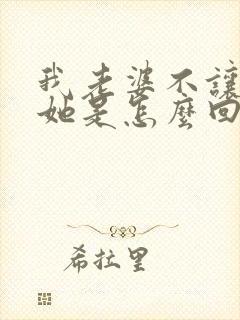 我老婆不讓
她是怎麼回
希拉里